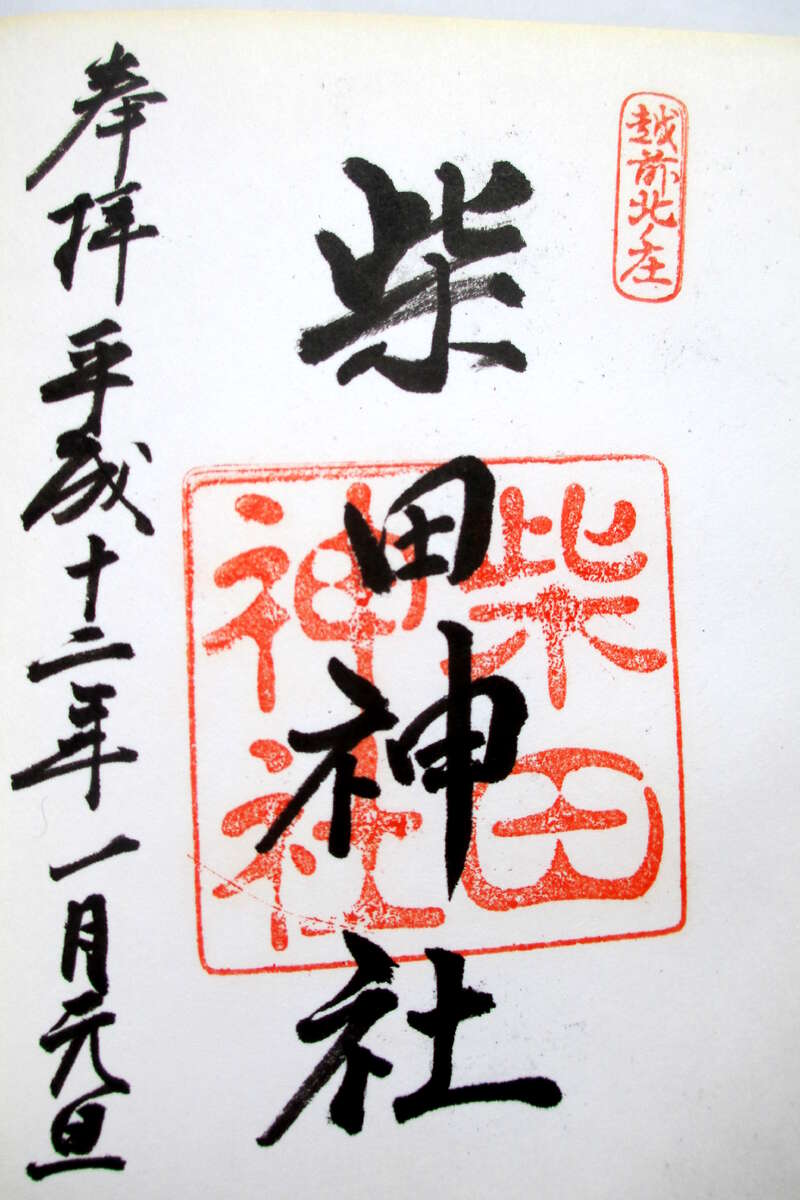 越前北ノ庄
柴田神社
柴田
神社
奉拝 平成十二年一月元旦